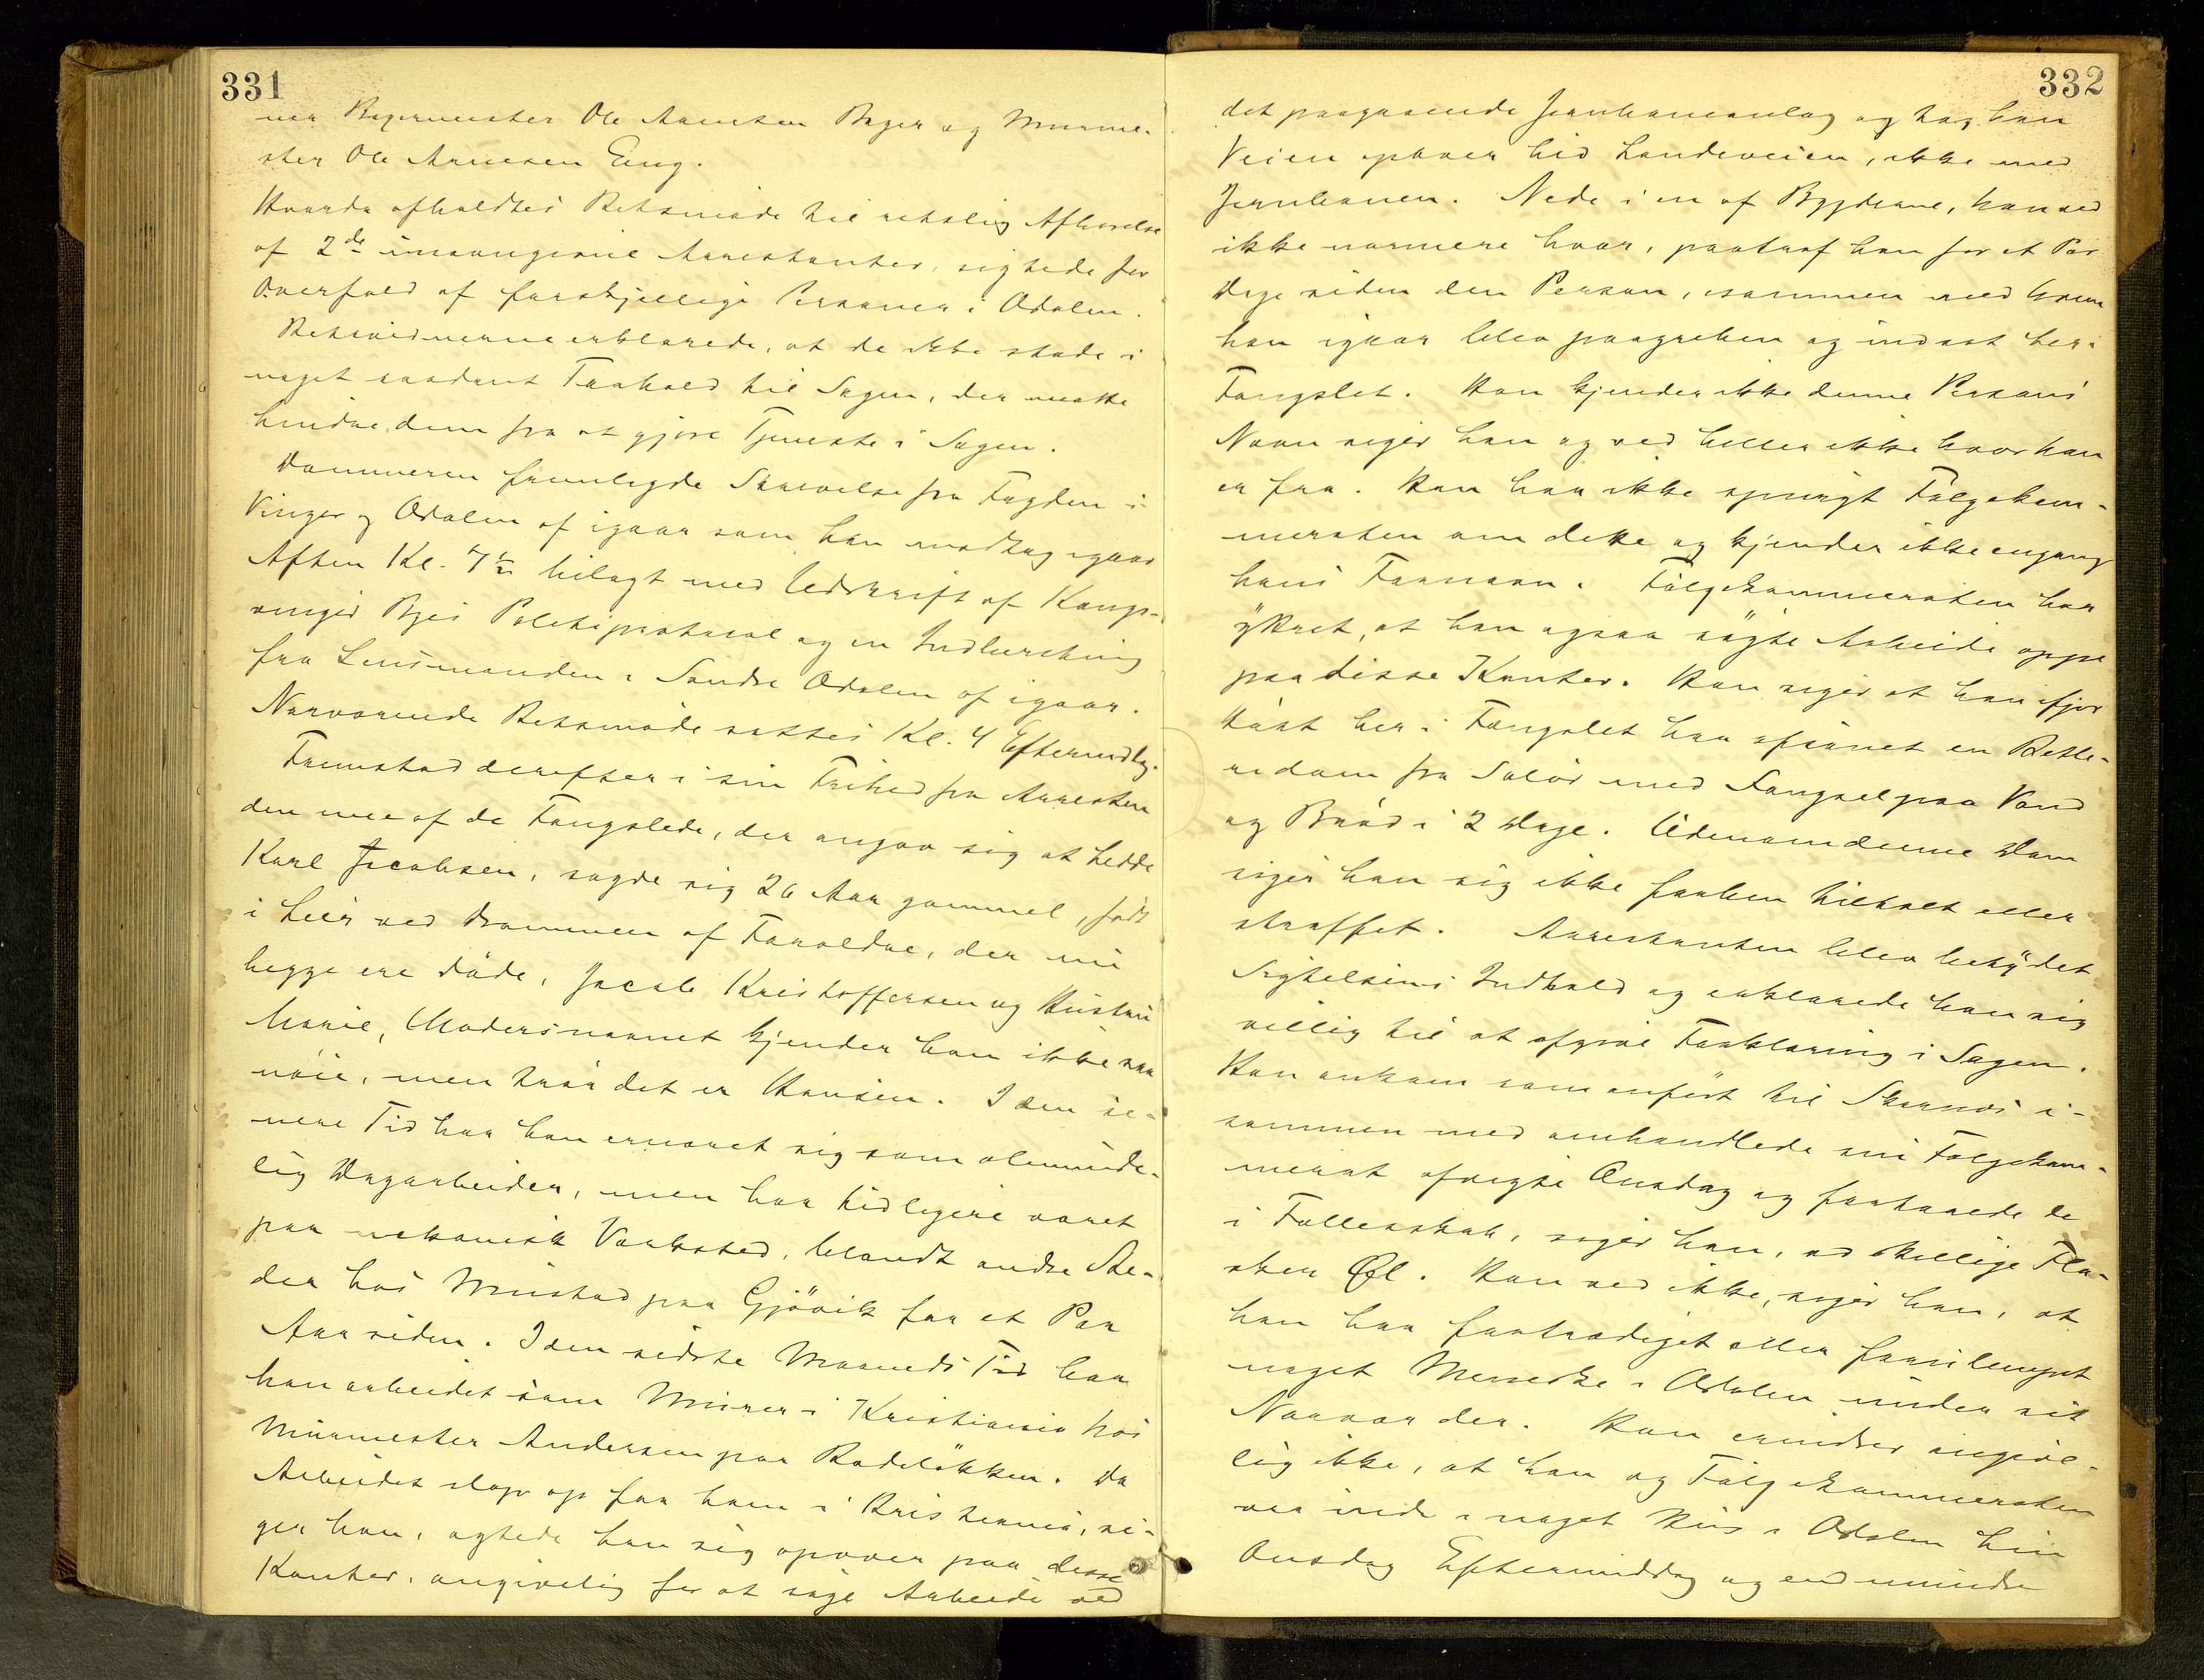 331
ner Bagermester Ole Arnesen Bager og Murme-
ster Ole Arnesen Eng.
Hvorda afholdtes Retsmøde til retslig Afhørelse
af 2de arrestanter, sigtede for
Overfald af forskjellige Personer i Odalen.
Retsvidnerne erklærede, at de ikke stode i
noget saadant Forhold til Sagen, der maatte
hindre dem fra at gjøre Tjeneste i Sagen.
Dommeren fremlagde Skrivelse fra Fogden i
Vinger og Odalen af igaar som han modtog igaar
Aften Kl. 7½ bilagt med Udskrift af Kongs-
vinger Byes Politiprotocol og en Indberetning
fra Lensmanden i Søndre Odalen af igaar.
Nærværende Retsmøde sattes Kl. 4 Eftermdag.
Fremstod derefter i sin Frihed fra Arresten
den ene af de Fængslede, der angav sig at hedde
Karl Jacobsen, sagde sig 26 Aar gammel, født
i Lier ved Drammen af Forældre, der nu
begge ere døde, Jacob Kristoffersen og Hustru
Marie, Modersnavnet kjender han ikke saa
nøie, men tror det er Hansen. I den se-
nere Tid har han ernæret sig som alminde-
lig Dagarbeider, men har tidligere været
paa mekanisk Værksted, blandt andre Ste-
der hos Mustad paa Gjøvik for et Par
Aar siden. I den sidste Maaneds Tid har
han arbeidet som Murer i Kristiania hos
Murmester Andersen paa Rodeløkken. Da
Arbeidet slap op for ham i Kristiania, si-
ger han, agtede han sig opover paa disse
Kanter, angivelig for at søge Arbeide ved
332
det paagaaende Jernbaneanlæg og tog han
Veien opover hid Landeveien, ikke med
Jernbanen. Nede i en af Bygderne, han ved
ikke nærmere hvor, paatraf han for et Par
Dage siden den Person, sammen med hvem
han igaar blev paagreben og indsat her i
Fængslet. Han kjender ikke denne Persons
Navn siger han og ved heller ikke hvor han
er fra. Han har ikke spurgt Følgekam-
meraten om dette og kjender ikke engang
hans Fornavn. Følgekammeraten har
ytret, at han ogsaa søgte Arbeide oppe
paa disse Kanter. Han siger at han ifjor
Høst her i Fængslet har afsonet en Betle-
redom fra Solør med Fængsel paa Vand
og Brød i 2 Dage. Udenom denne Dom
siger han sig ikke forhen tiltalt eller
straffet. Arrestanten blev betydet
Sigtelsens Indhold og erklærede han sig
villig til at afgive Forklaring i Sagen.
Han ankom som anført til Skarnes i-
sammen med omhandlede sin Følgekam-
merat afvigte Onsdag og fortærede de
i Fællesskab, siger han, endskillige Fla-
sker Øl. Han ved ikke, siger han, at
han har fortrædiget eller forulempet
noget Menneske i Odalen under sit
Nærvær der. Han erindrer angive-
lig ikke, at han og Følgekammeraten
var inde i noget Hus i Odalen hin
Onsdag Eftermiddag og end mindre